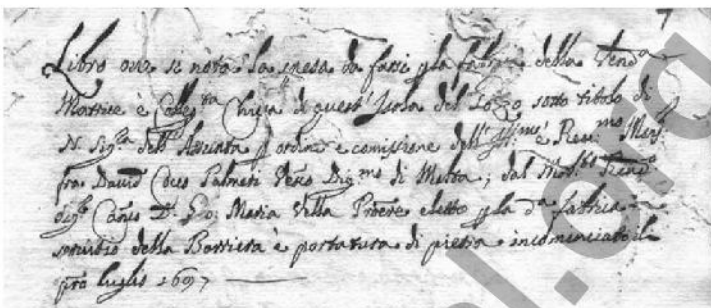 Libro ove si nota la spesa da farsi p la fabrica della Vend.a
Matrice è Colleg.ta Chiesa di quest' Isola del Gozo sotto titolo di
N. Sig.ra dell' Assunta p ordine e comissione dell' Ill.mo è Rev.mo Mons.
fra David Cocco Palmeri Vesc.o Dig.mo di Malta, dal Mol.to Rend.o
Sig.r Can.co D. Gio: Maria Villa Proc.re eletto p la d.a fabrica in
servitio della Barriera è portatura di pietra incominciato il
p.ro luglio 1697
7
el.org